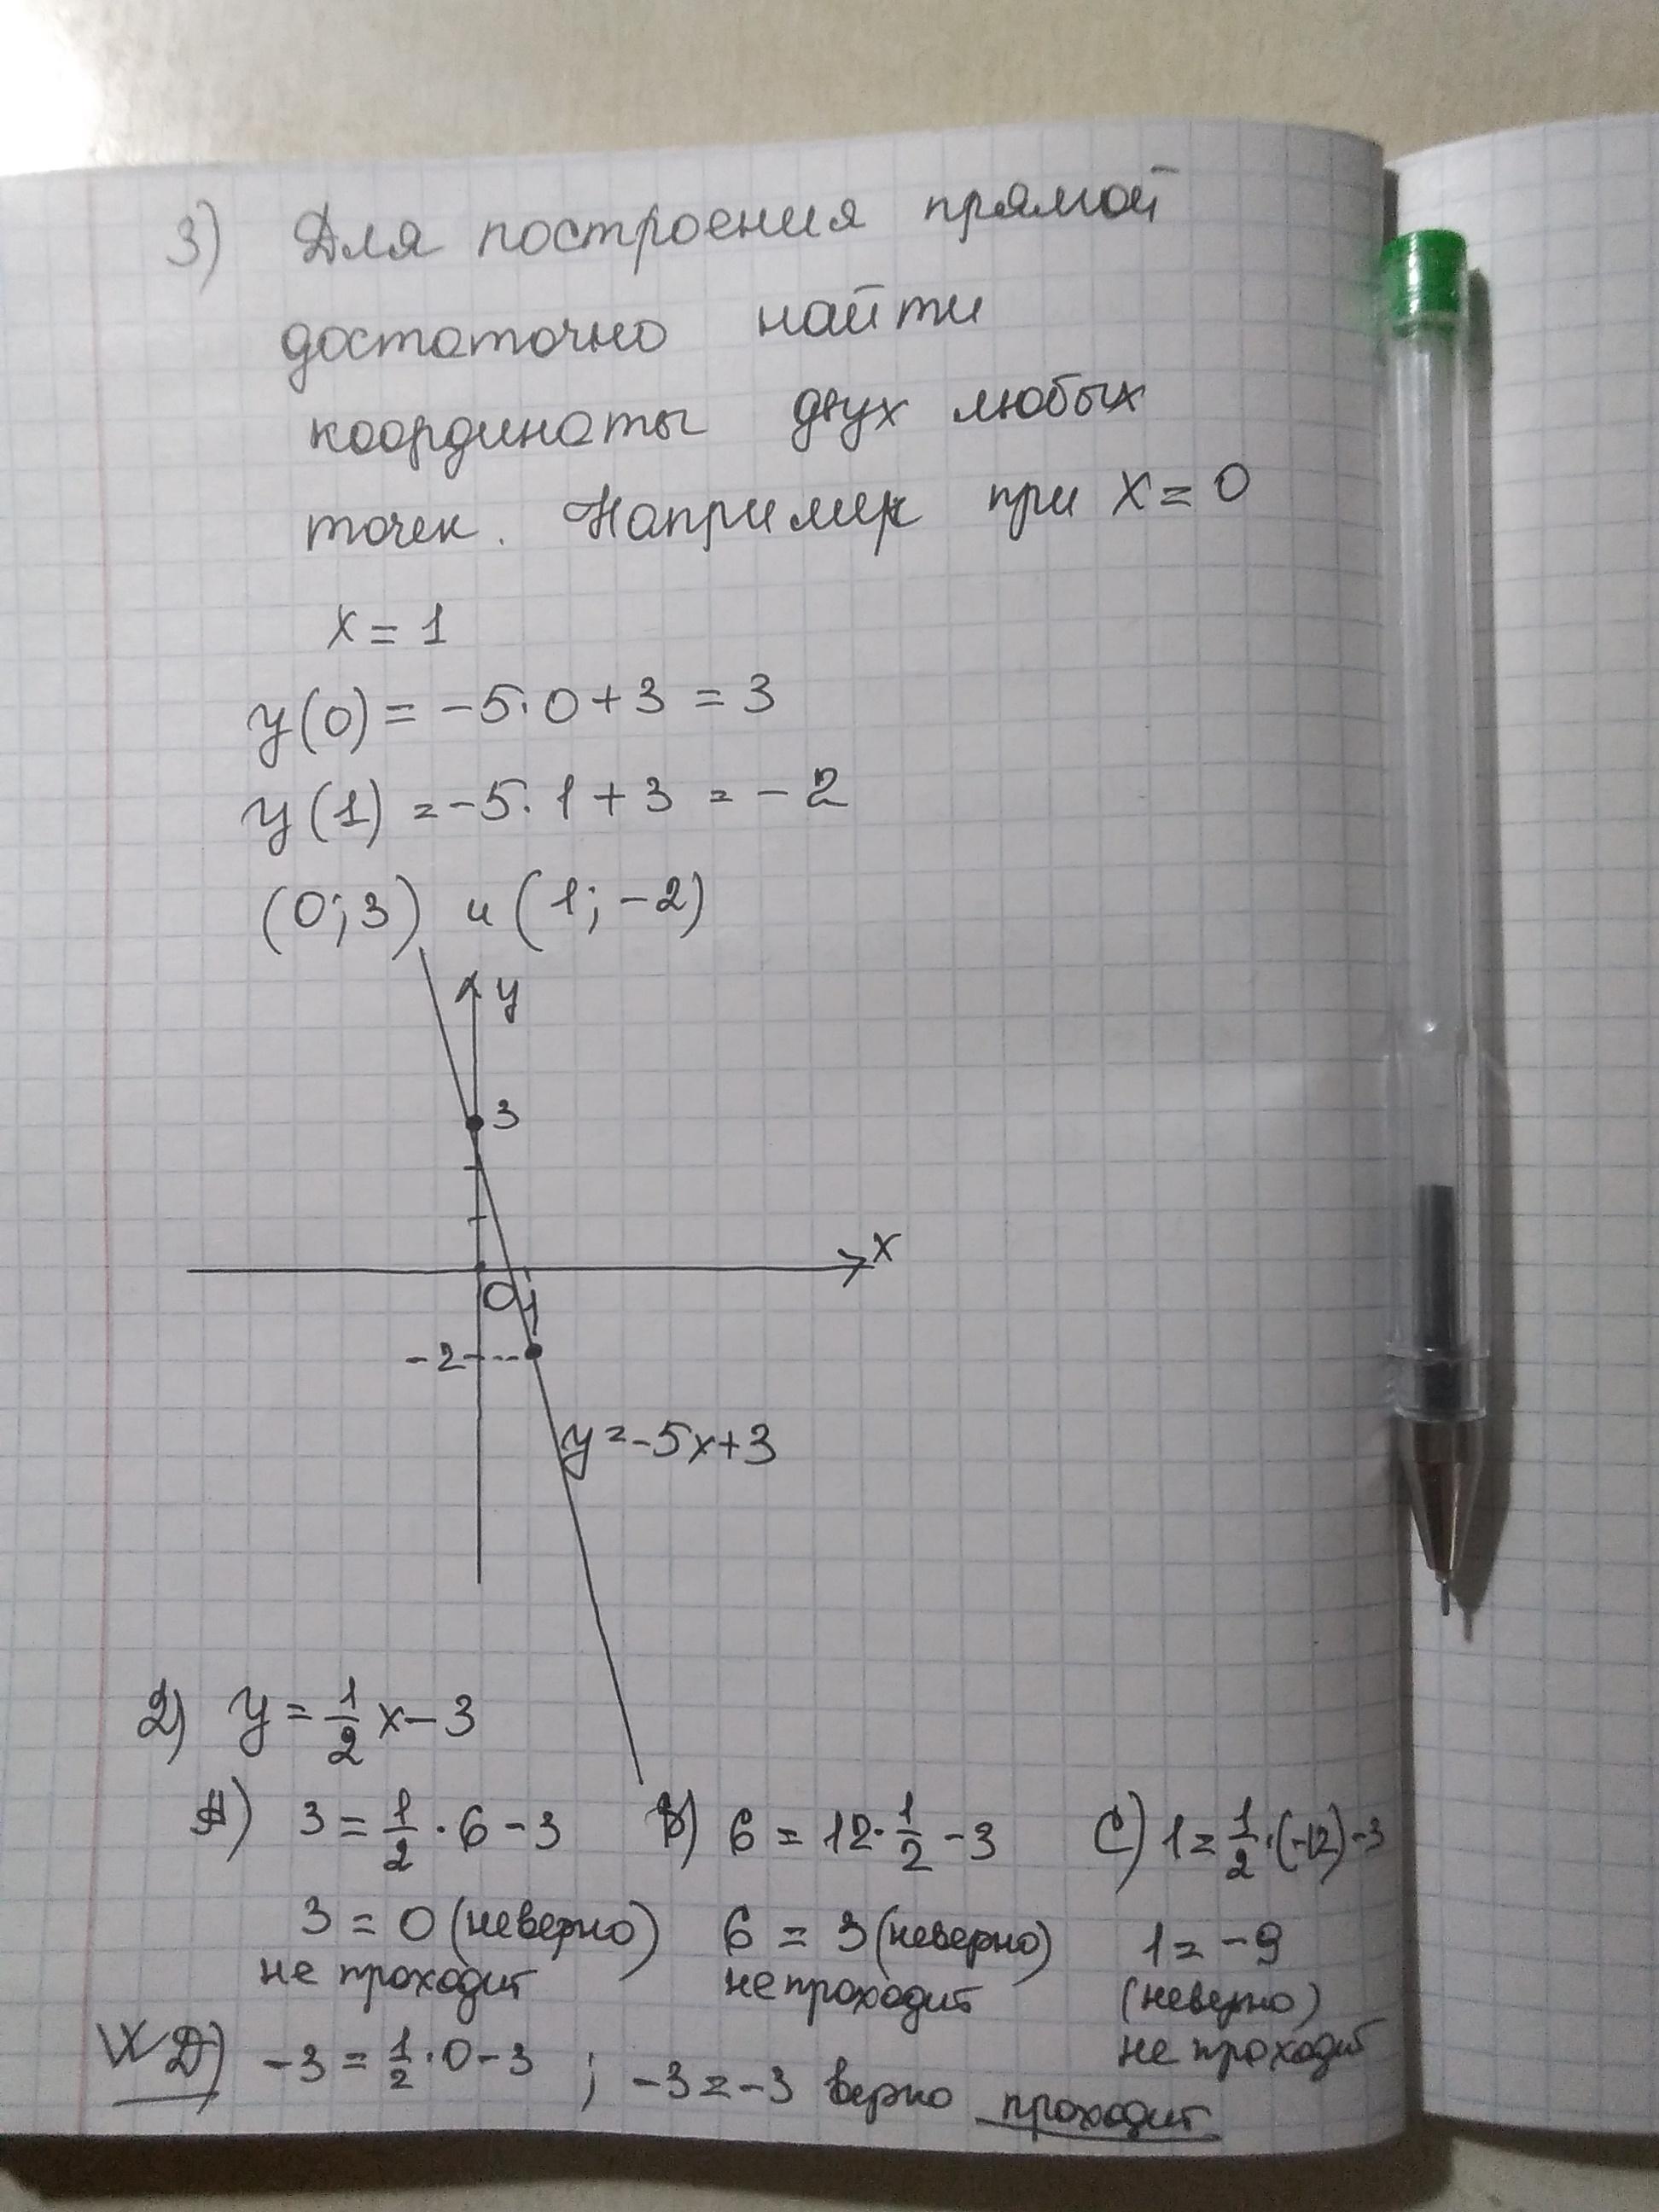 3) Для построения прямой
достаточно найти
координаты двух любых
точек. Например при x = 0
x = 1
y(0) = -5·0+3 = 3
y(1) = -5·1+3 = -2
(0;3) и (1;-2)
y
3
x
0 1
-2
y=-5x+3
2) y = 1/2 x - 3
A) 3 = 1/2 · 6 - 3 B) 6 = 12 · 1/2 - 3 C) 1 = 1/2 · (-12) - 3
3 = 0 (неверно) 6 = 3 (неверно) 1 = -9
не проходит не проходит (неверно)
не проходит
V D) -3 = 1/2 · 0 - 3 ; -3 = -3 верно проходит